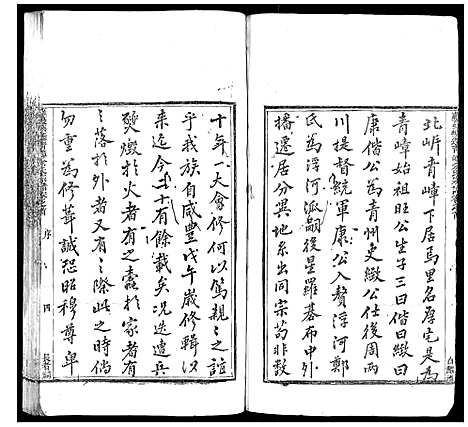 北岸青嶂下居焉里名康宅是為
青嶂始祖旺公生子三曰偕曰緻曰
康偕公為青州吏緻公仕後周兩
川提督統軍康公入贅浮河鄭
氏為浮河派嗣後星羅棊布中外
播遷居分異地系出同宗苟非數
十年一大會修何以篤親〻之誼
乎我族自咸豐戊午歲修輯以
來迄今三十有餘載矣况迭遭兵
燹燬於火者有之蠹於家者有
之落於外者又有之〻際此之時倘
勿重為修葺誠恐昭穆尊卑
序
四
長春祠